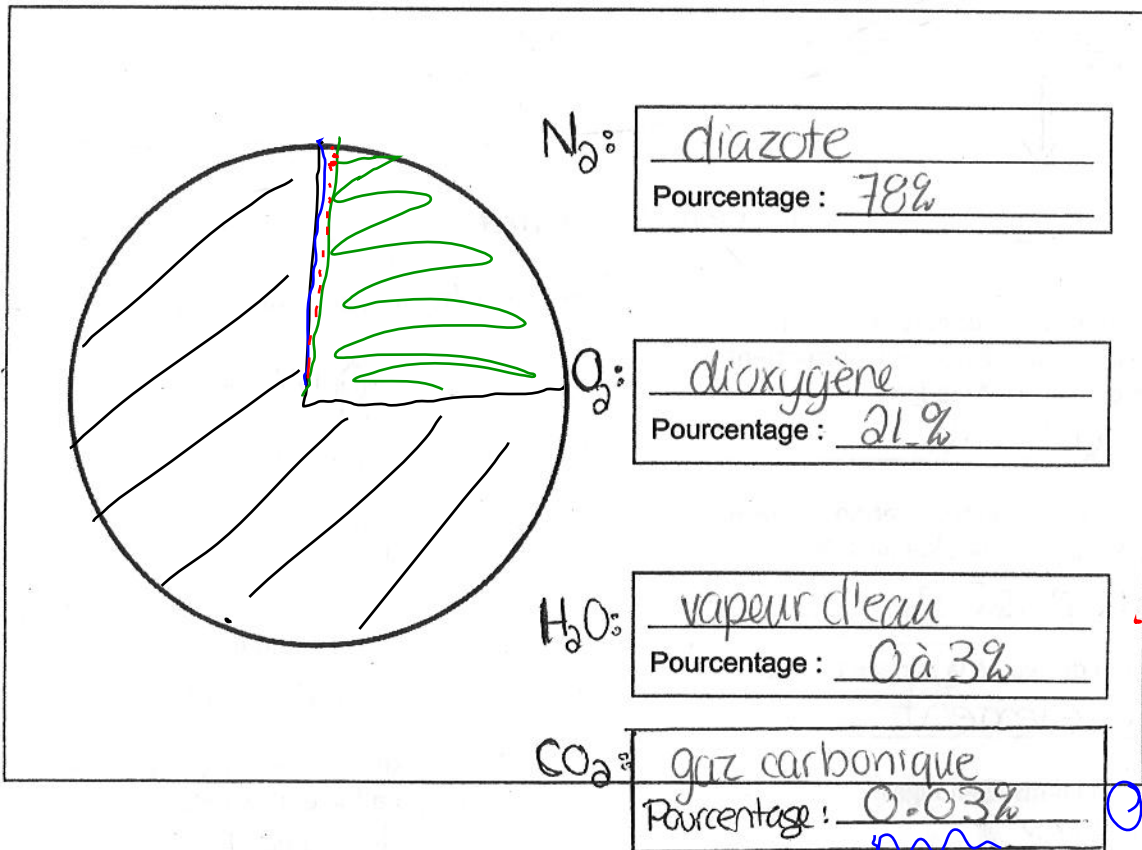 N₂: diazote
Pourcentage : 78%
O₂: dioxygène
Pourcentage : 21%
H₂O: vapeur d'eau
Pourcentage : 0 à 3%
CO₂: gaz carbonique
Pourcentage : 0.03%